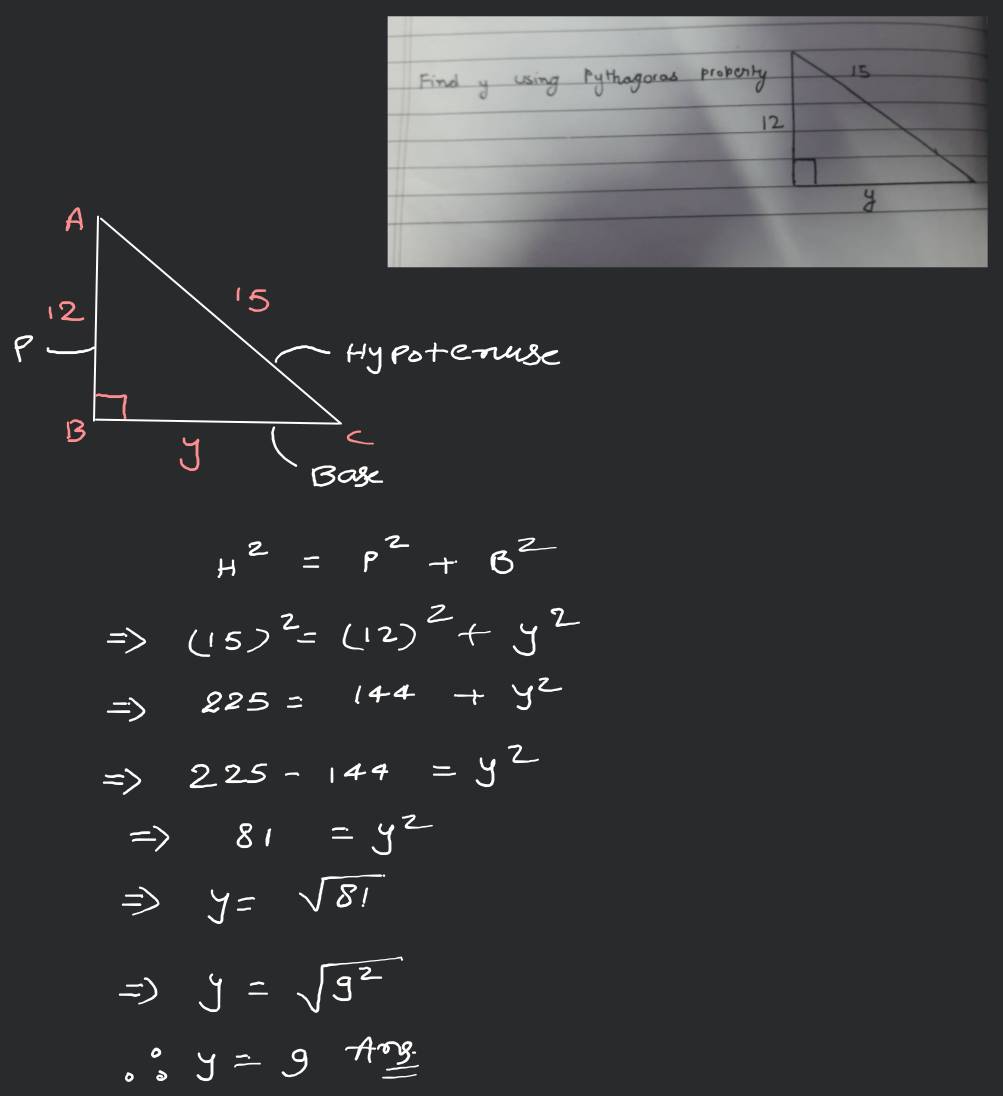 Find y using Pythagoras property
15
12
y
A
12
15
P
Hypotenuse
B
y
C
Base
H² = P² + B²
=> (15)² = (12)² + y²
=> 225 = 144 + y²
=> 225 - 144 = y²
=> 81 = y²
=> y = √81
=> y = √9²
∴ y = 9 Ans.